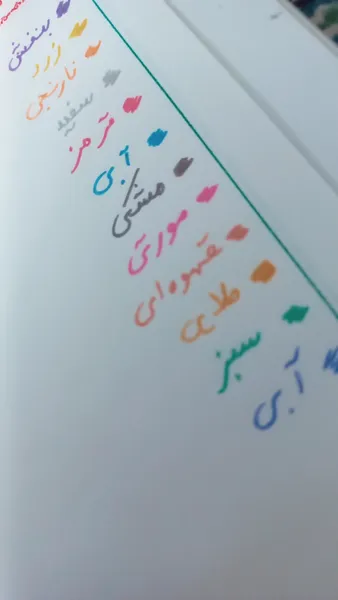 بنفش
زرد
نارنجی
سفید
قرمز
آبی
مشکی
صورتی
قهوه‌ای
طلایی
سبز
آبی